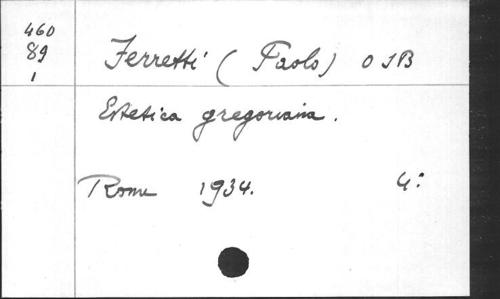 460
89
1
Ferretti (Paolo) OSB
Estetica gregoriana.
Rome 1934. 4: